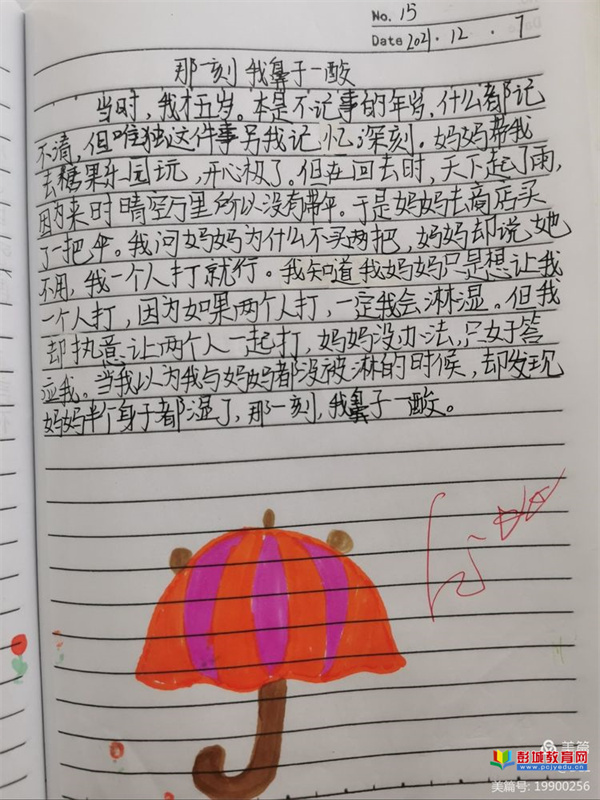 No. 15
Date 2021.12.7
那一刻我鼻子一酸
当时,我才五岁。本是不记事的年岁,什么都记
不清,但唯独这件事另我记忆深刻。妈妈带我
去糖果乐园玩,开心极了。但在回去时,天下起了雨,
因为来时晴空万里所以没有带伞。于是妈妈去商店买
了一把伞。我问妈妈为什么不买两把,妈妈却说她
不用,我一个人打就行。我知道我妈妈只是想让我
一个人打,因为如果两个人打,一定我会淋湿。但我
却执意让两个人一起打,妈妈没办法,只好答
应我。当我以为我与妈妈都没被淋的时候,却发现
妈妈半个身子都湿了,那一刻,我鼻子一酸。
美篇
彭城教育网
www.pcjyedu.cn
美篇号: 19900256